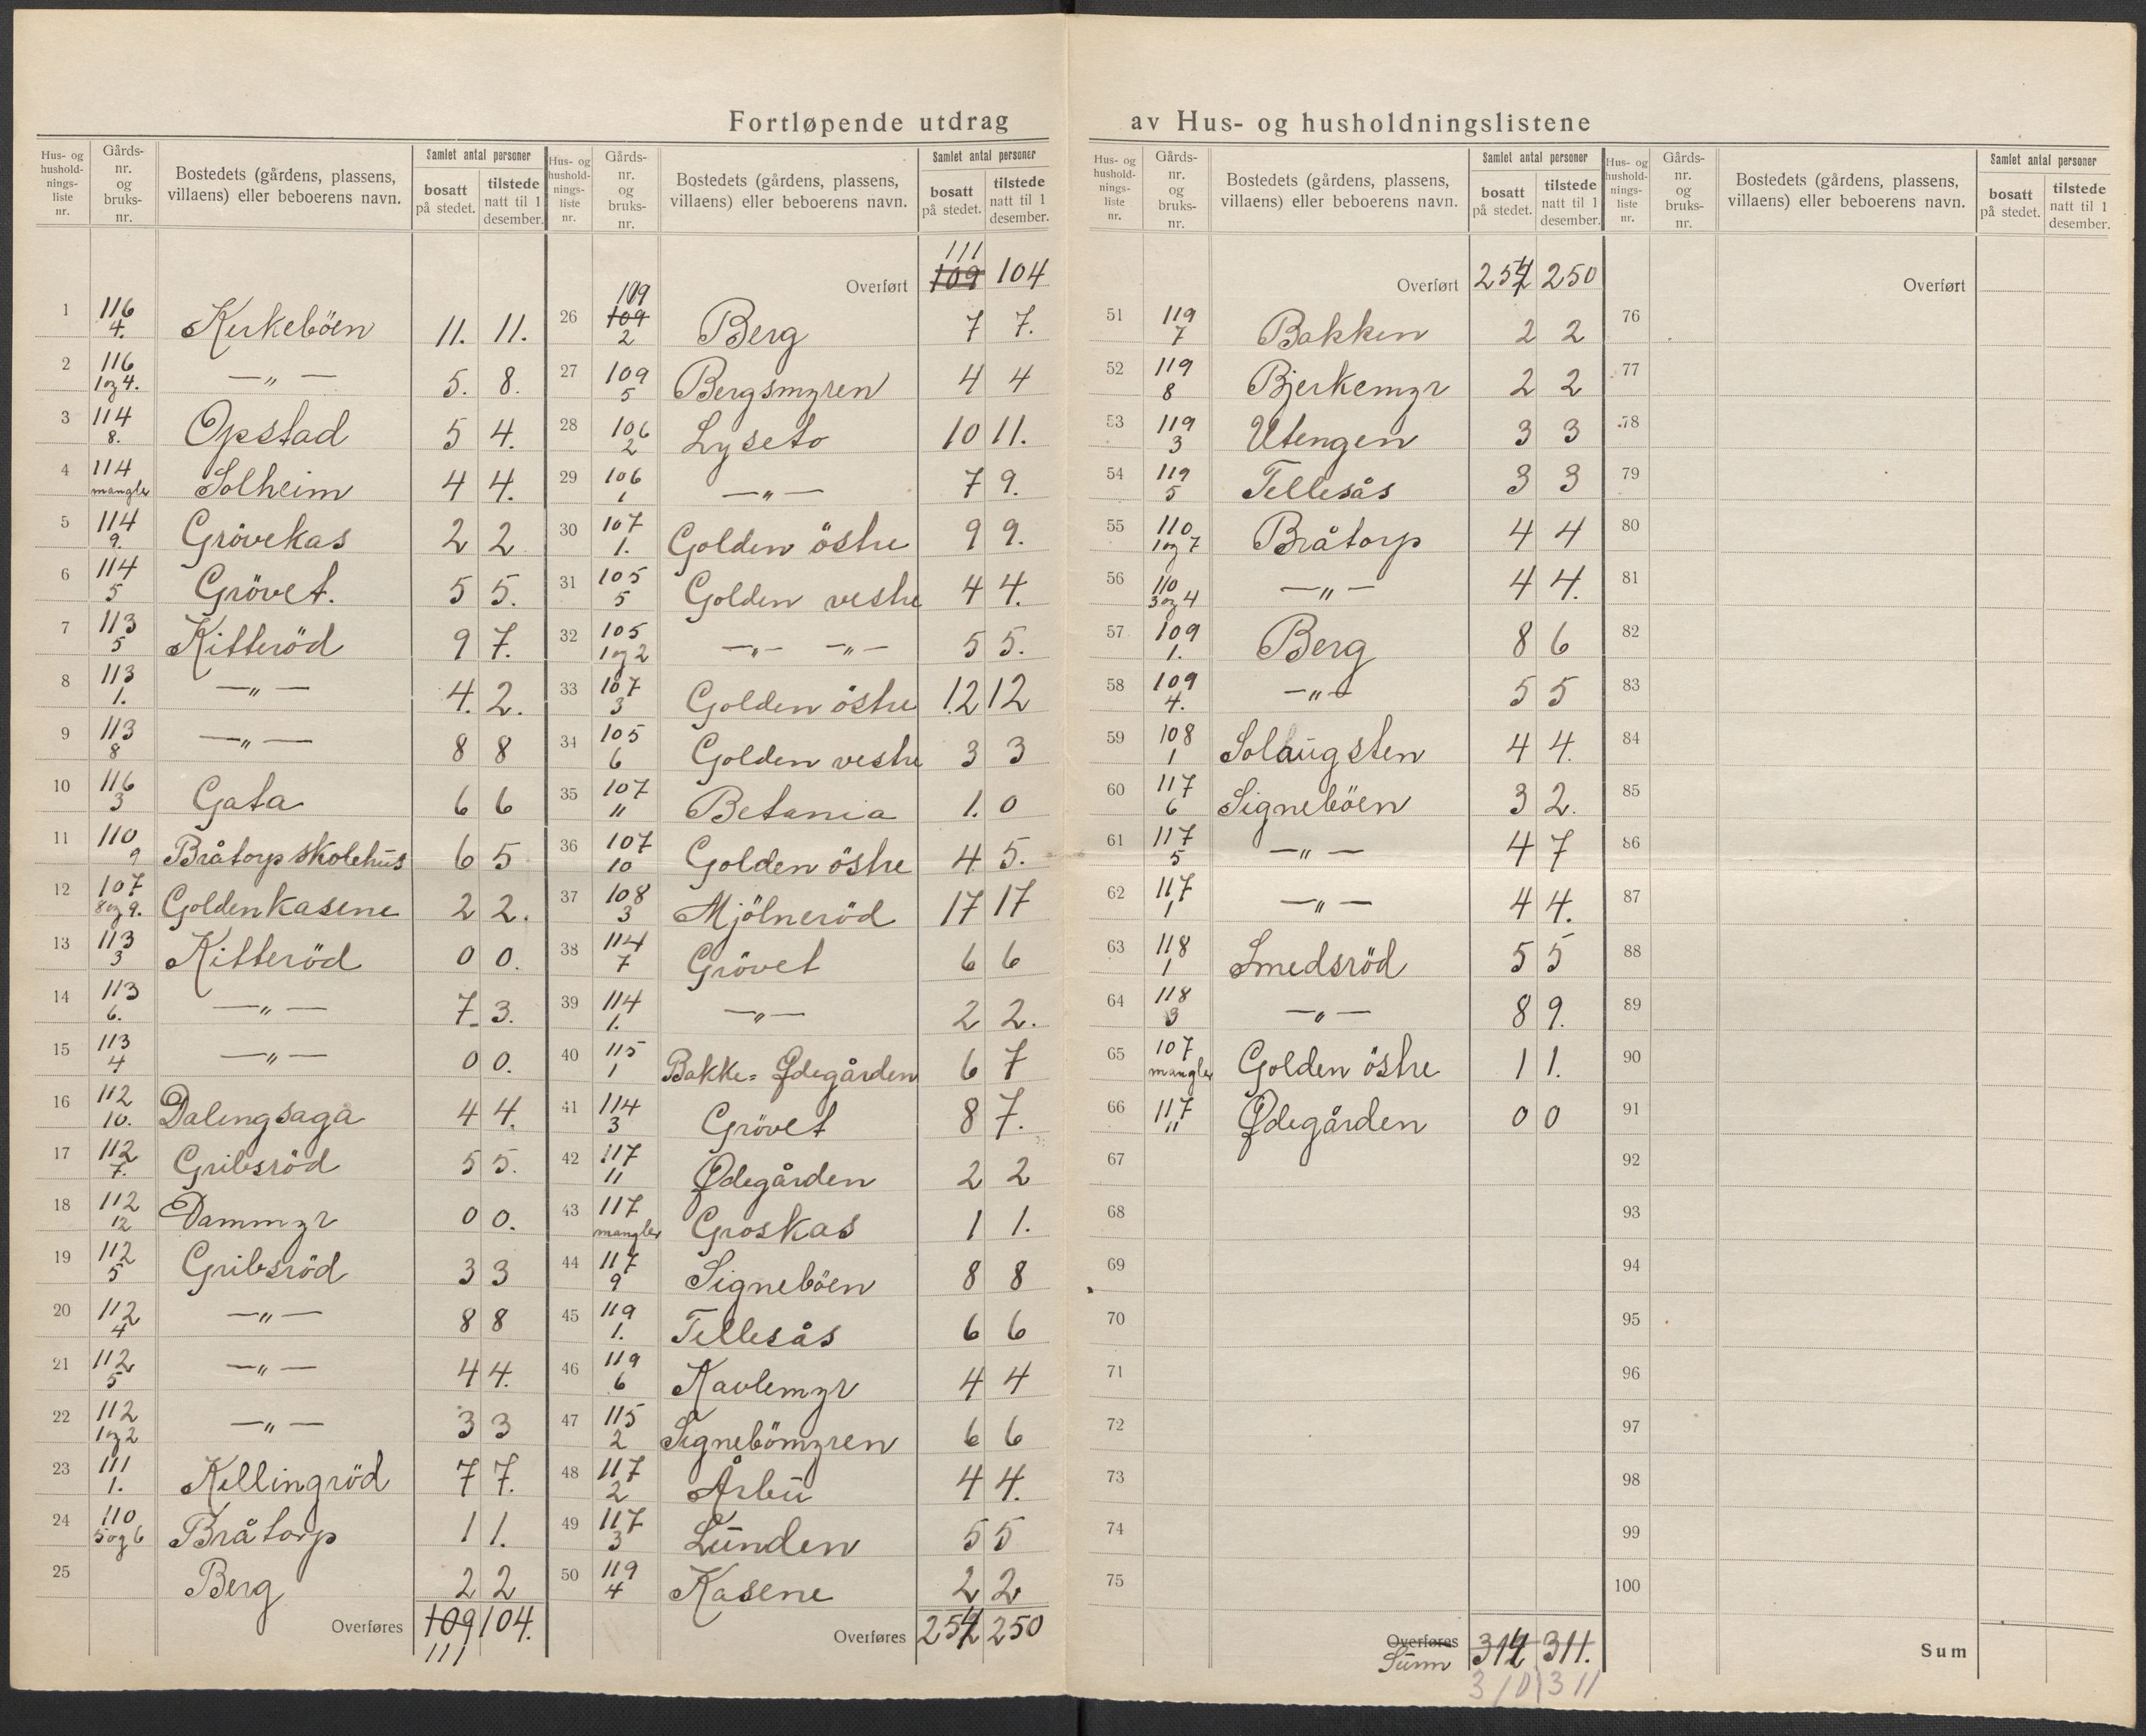 Fortløpende utdrag av Hus- og husholdningslistene
Hus- og hushold-nings-liste nr. | Gårds-nr. og bruks-nr. | Bostedets (gårdens, plassens, villaens) eller beboerens navn. | Samlet antal personer | bosatt på stedet. | tilstede natt til 1 desember.
1 116 4. Kirkeböen 11. 11.
2 116 1og4. —„— 5. 8.
3 114 8. Opstad 5 4.
4 114 mangler Solheim 4 4.
5 114 9. Grövekas 2 2
6 114 5 Grövet. 5 5.
7 113 5 Kitteröd 9 7.
8 113 1. —„— 4. 2.
9 113 8 —„— 8 8
10 116 3 Gata 6 6
11 110 9 Bråtorp skolehus 6 5
12 107 8og9. Goldenkasene 2 2.
13 113 3 Kitteröd 0 0.
14 113 6. —„— 7. 3.
15 113 4 —„— 0 0.
16 112 10. Dalengsaga 4 4.
17 112 7. Gribsröd 5 5.
18 112 12 Dammyr 0 0.
19 112 5 Gribsröd 3 3
20 112 4 —„— 8 8
21 112 5 —„— 4 4.
22 112 1og2 —„— 3 3
23 111 1. Killingröd 7 7.
24 110 5og6 Bråtorp 1 1.
25 Berg 2 2
Overføres 109 104.
111
Hus- og hushold-nings-liste nr. | Gårds-nr. og bruks-nr. | Bostedets (gårdens, plassens, villaens) eller beboerens navn. | Samlet antal personer | bosatt på stedet. | tilstede natt til 1 desember.
111
Overført 109 104
26 109 109 2 Berg 7 7.
27 109 5 Bergsmyren 4 4
28 106 2 Lyseto 10 11.
29 106 1 —„— 7 9.
30 107 1. Golden östre 9 9.
31 105 5 Golden vestre 4 4.
32 105 1og2 —„— —„— 5 5.
33 107 3 Golden östre 12 12
34 105 6 Golden vestre 3 3
35 107 11 Betania 1. 0
36 107 10 Golden östre 4 5.
37 108 3 Mjölneröd 17 17
38 114 7 Grövet 6 6
39 114 1. —„— 2 2.
40 115 1 Bakke= Ødegården 6 7
41 114 3 Grövet 8 7.
42 117 11 Ødegården 2 2
43 117 mangler Groskas 1 1.
44 117 9 Signeböen 8 8
45 119 1. Tellesås 6 6
46 119 6 Kavlemyr 4 4
47 115 2 Signebömyren 6 6
48 117 2 Årbu 4 4.
49 117 3 Lunden 5 5
50 119 4 Kasene 2 2
Overføres 250
Hus- og hushold-nings-liste nr. | Gårds-nr. og bruks-nr. | Bostedets (gårdens, plassens, villaens) eller beboerens navn. | Samlet antal personer | bosatt på stedet. | tilstede natt til 1 desember.
Overført 250
51 119 7 Bakken 2 2
52 119 8 Bjerkemyr 2 2
53 119 3 Utengen 3 3
54 119 5 Tellesås 3 3
55 110 1og7 Bråtorp 4 4
56 110 3og4 —„— 4 4.
57 109 1. Berg 8 6
58 109 4. —„— 5 5
59 108 1 Solaugsten 4 4.
60 117 6 Signeböen 3 2.
61 117 5 —„— 4 7
62 117 1 —„— 4 4.
63 118 1 Smedsröd 5 5
64 118 3 —„— 8 9.
65 107 mangler Golden östre 1 1.
66 117 11 Ødegården 0 0
67
68
69
70
71
72
73
74
75
Overføres
Sum 311.
310 311
Hus- og hushold-nings-liste nr. | Gårds-nr. og bruks-nr. | Bostedets (gårdens, plassens, villaens) eller beboerens navn. | Samlet antal personer | bosatt på stedet. | tilstede natt til 1 desember.
Overført
76
77
78
79
80
81
82
83
84
85
86
87
88
89
90
91
92
93
94
95
96
97
98
99
100
Sum